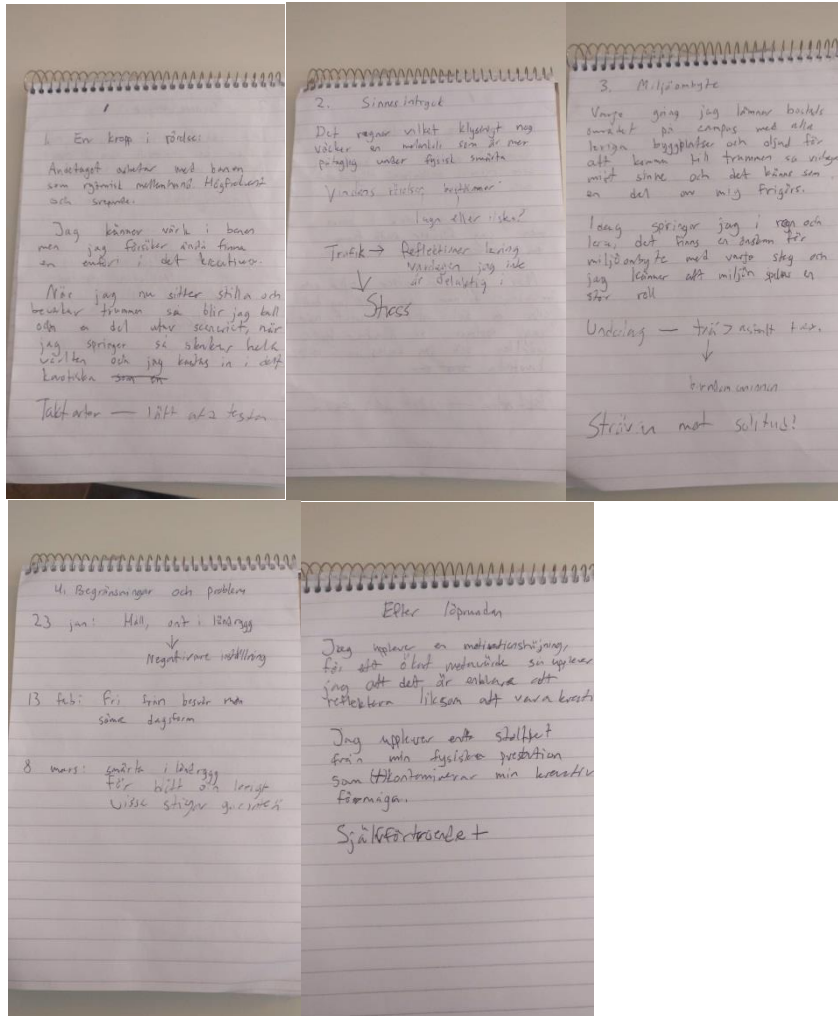 1. En kropp i rörelse
Andetaget arbetar med benen
som rytmisk mellanhand. Högfrekvent
och svepande.
Jag känner värk i benen
men jag försöker ändå finna
en entré i det kreativa.
När jag nu sitter still och
betraktar trummen så blir jag ball
och en del utav sceneriet, när
jag springer så skakar hela
världen och jag kastas in i det
kaotiska som en
Taktarter — lätt att testa
2. Sinnesintryck
Det regnar vilket klyschigt nog
väcker en melankoli som är mer
påtaglig under fysisk smärta
Vindens rörelse bestämmer
lugn eller ilska?
Trafik → Reflektioner kring
vardagen jag inte
är delaktig i
↓
Stress
3. Miljöombyte
Varje gång jag lämnar bostads
området på campus med alla
leriga byggplatser och oljud för
att komma till så vidgas
mitt sinne och det känns som
en del av mig frigörs.
Idag springer jag i regn och
lera, det finns en önskan för
miljöombyte med varje steg och
jag känner att miljön spelar en
stor roll
Underlag — trä > asfalt t.ex.
↓
Strävan mot solitud!
4. Begränsningar och problem
23 jan: Håll, ont i ländrygg
↓
Negativare inställning
13 feb: Fri från besvär men
sämre dagsform
8 mars: smärta i ländrygg
för blött och lerigt
vissa stigar
Efter löprundan
Jag upplever en motivationshöjning,
för att ökat så upplever
jag att det är enklare att
reflektera liksom att vara kreativ
Jag upplever en stolthet
från min fysiska prestation
som (+)kontaminerar min kreativa
förmåga.
Självförtroende +